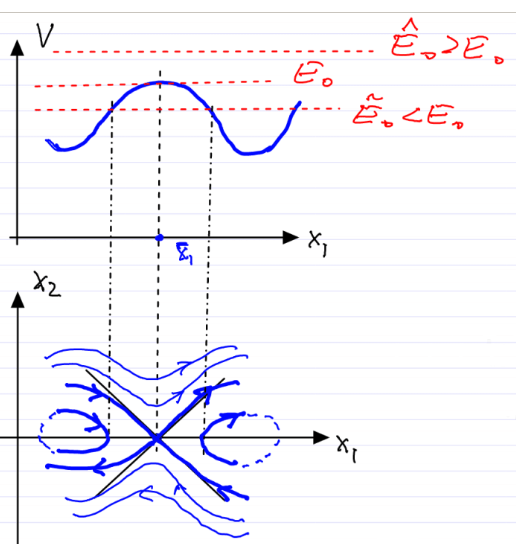 V
Ê₀>E₀
E₀
Ẽ₀<E₀
x₁
x̄₁
x₂
x₁